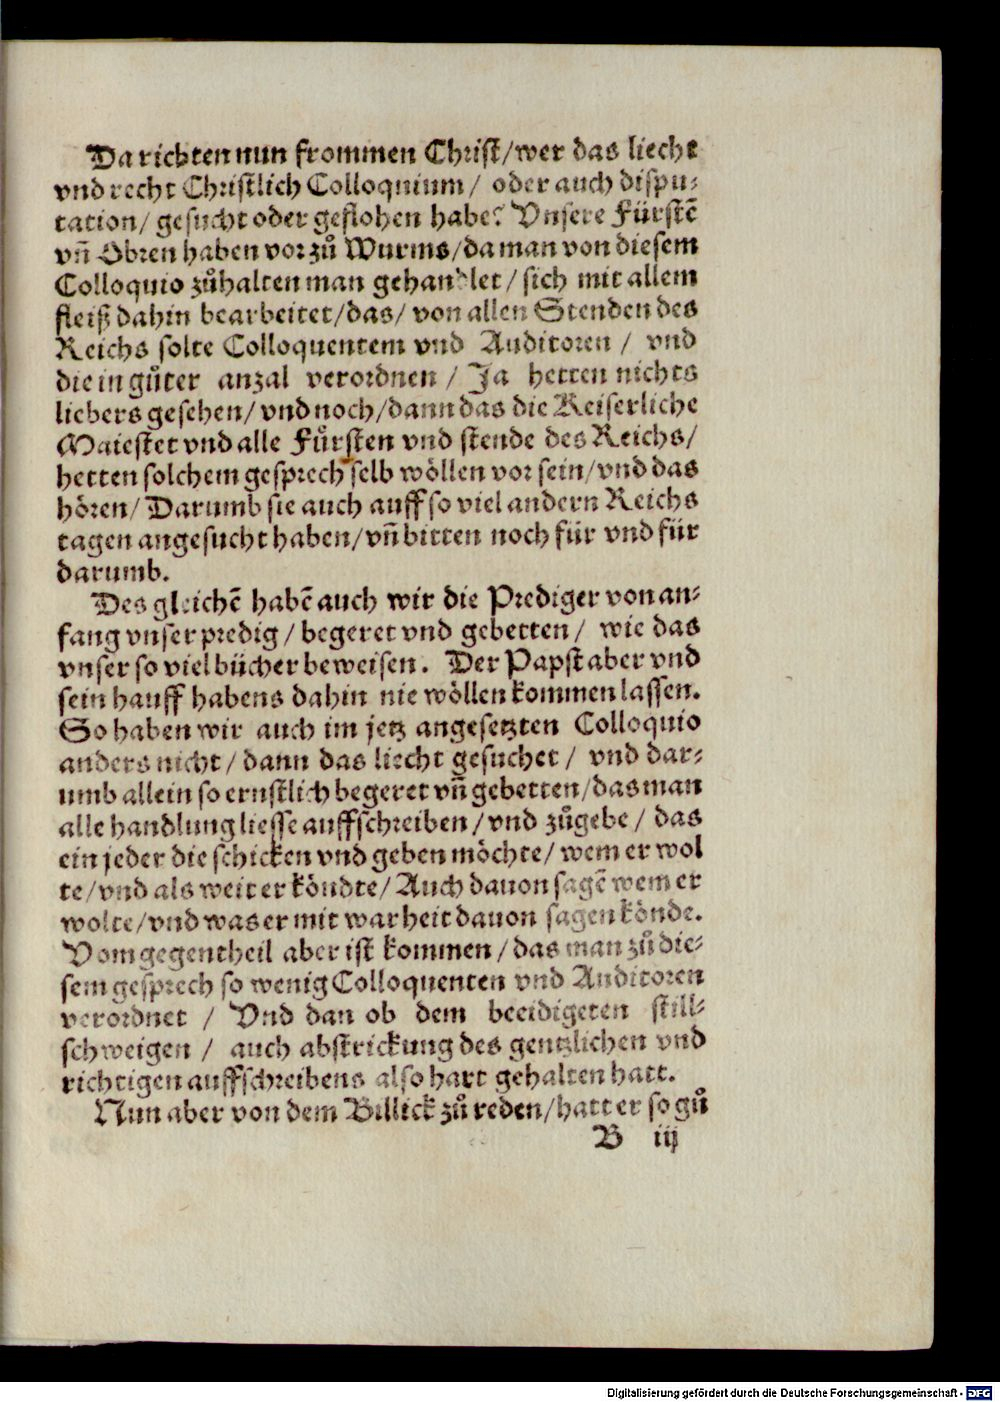 Da richten nun frommen Christ/wer das liecht
vnd recht Christlich Colloquium/ oder auch dispu⸗
tation/ gesucht oder geflohen habe? Vnsere Fürstẽ
vñ Obren haben vor zů Wurms/da man von diesem
Colloquio zůhalten man gehandlet/sich mit allem
fleiß dahin bearbeitet/das/ von allen Stenden des
Reichs solte Colloquentem vnd Auditoren/ vnd
die in gůter anzal verordnen/ Ja hetten nichts
liebers gesehen/vnd noch/dann das die Keiserliche
Maiestet vnd alle Fürsten vnd stende des Reichs/
hetten solchem gesprech selb wöllen vor sein/vnd das
hören/ Darumb sie auch auff so viel andern Reichs
tagen angesucht haben/vñ bitten noch für vnd für
darumb.
Des gleichẽ habẽ auch wir die Prediger von an⸗
fang vnser predig/begeret vnd gebetten/ wie das
vnser so viel bücher beweisen. Der Papst aber vnd
sein hauff habens dahin nie wöllen kommen lassen.
So haben wir auch im jetz angesetzten Colloquio
anders nicht/ dann das liecht gesuchet/ vnd dar⸗
umb allein so ernstlich begeret vñ gebetten/das man
alle handlung liesse auffschreiben/vnd zůgebe/ das
ein jeder die schicken vnd geben möchte/wem er wol
te/vnd als weit er köndte/Auch dauon sagẽ wem er
wolte/vnd was er mit warheit dauon sagen könde.
Vom gegentheil aber ist kommen/das man zů die⸗
sem gesprech so wenig Colloquenten vnd Auditoren
verordnet / Vnd dan ob dem beeidigeten still⸗
schweigen / auch abstrickung des gentzlichen vnd
richtigen auffschreibens also hart gehalten hatt.
Nun aber von dem Billick zů reden/hatt er so gů
B iij
Digitalisierung gefördert durch die Deutsche Forschungsgemeinschaft - DFG